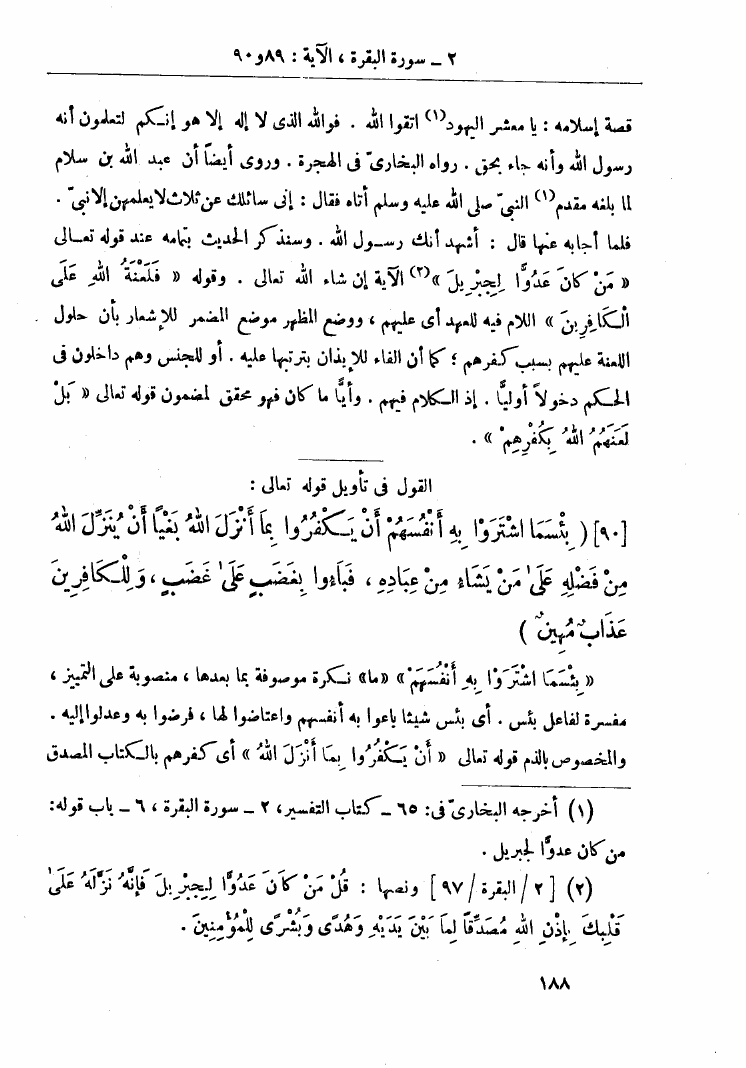 ٢ ــ سورة البقرة ، الآية : ٨٩و٩٠
قصة إسلامه : يا معشر اليهود(١) اتقوا الله . فوالله الذى لا إله إلا هو إنـكم لتعلمون أنه
رسول الله وأنه جاء بحق . رواه البخارىّ فى الهجرة . وروى أيضاً أن عبد الله بن سلام
لما بلغه مقدم(١) النبىّ صلى الله عليه وسلم أتاه فقال : إنى سائلك عن ثلاث لا يعلمهن إلا نبىّ .
فلما أجابه عنها قال : أشهد أنك رسـول الله . وسنذكر الحديث بتمامه عند قوله تعـالى
« مَنْ كَانَ عَدُوًّا لِجِبْرِيلَ »(٢) الآية إن شاء الله تعالى . وقوله « فَلَعْنَةُ اللهِ عَلَى
الْـكَافِرِينَ » اللام فيه للعهد أى عليهم ، ووضع المظهر موضع المضمر للإشعار بأن حلول
اللعنة عليهم بسبب كـفرهم ؛ كما أن الفاء للإيذان بترتبها عليه . أو للجنس وهم داخلون فى
الحـكم دخولاً أوليًّا . إذ الـكلام فيهم . وأيًّا ما كان فهو محقق لمضمون قوله تعالى « بَلْ
لَعَنَهُمُ اللهُ بِكُفْرِهِمْ » .
القول فى تأويل قوله تعالى :
[٩٠] ( بِئْسَمَا اشْتَرَوْا بِهِ أَنْفُسَهُمْ أَنْ يَـكْفُرُوا بِمَا أَنْزَلَ اللهُ بَغْيًا أَنْ يُنَزِّلَ اللهُ
مِنْ فَضْلِهِ عَلَىٰ مَنْ يَشَاءُ مِنْ عِبَادِهِ ، فَبَاءُوا بِغَضَبٍ عَلَىٰ غَضَبٍ ، وَلِلْـكَافِرِينَ
عَذَابٌ مُهِينٌ )
« بِئْسَمَا اشْتَرَوْا بِهِ أَنْفُسَهُمْ » «ما» نـكرة موصوفة بما بعدها ، منصوبة على التمييز ،
مفسرة لفاعل بئس . أى بئس شيئا باعوا به أنفسهم واعتاضوا لها ، فرضوا به وعدلوا إليه .
والمخصوص بالذم قوله تعالى « أَنْ يَـكْفُرُوا بِمَا أَنْزَلَ اللهُ » أى كفرهم بالـكتاب المصدق
(١) أخرجه البخارىّ فى : ٦٥ ــ كتاب التفسير، ٢ ــ سورة البقرة ، ٦ ــ باب قوله:
من كان عدوًّا لجبريل .
(٢) [ ٢ / البقرة / ٩٧ ] ونصها : قُلْ مَنْ كَانَ عَدُوًّا لِجِبْرِيلَ فَإِنَّهُ نَزَّلَهُ عَلَىٰ
قَلْبِكَ بِإِذْنِ اللهِ مُصَدِّقًا لِمَا بَيْنَ يَدَيْهِ وَهُدًى وَبُشْرَىٰ لِلْمُؤْمِنِينَ .
١٨٨